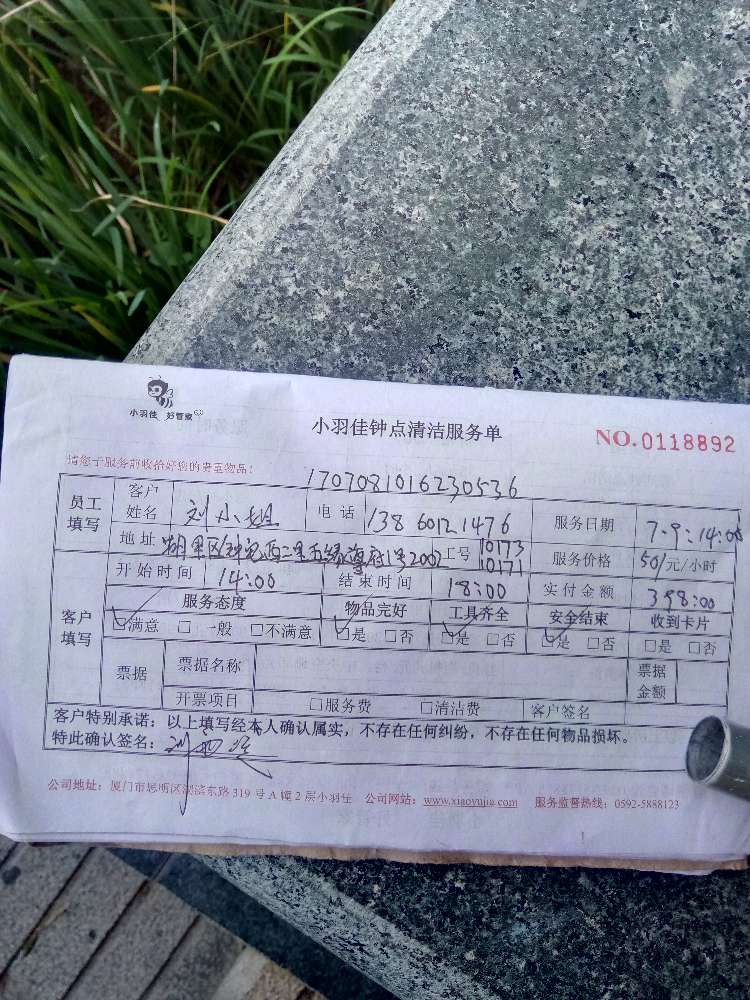 小羽佳 好管家
小羽佳钟点清洁服务单 NO.0118892
请您于服务前收拾好您的贵重物品: 1707081016230536
员工填写 客户姓名 刘小姐 电话 13860121476 服务日期 7.9:14:00
地址 湖里区 西二里五缘尊府1号2002 工号 10173 10171 服务价格 50/元/小时
开始时间 14:00 结束时间 18:00 实付金额 398:00
客户填写 服务态度 物品完好 工具齐全 安全结束 收到卡片
☑满意 □一般 □不满意 ☑是 □否 ☑是 □否 ☑是 □否 □是 □否
票据 票据名称 票据金额
开票项目 □服务费 □清洁费 客户签名
客户特别承诺：以上填写经本人确认属实，不存在任何纠纷，不存在任何物品损坏。
特此确认签名：
公司地址：厦门市思明区湖滨东路 319 号 A 幢 2 层小羽佳 公司网站：www.xiaoyujia.com 服务监督热线：0592-5888123